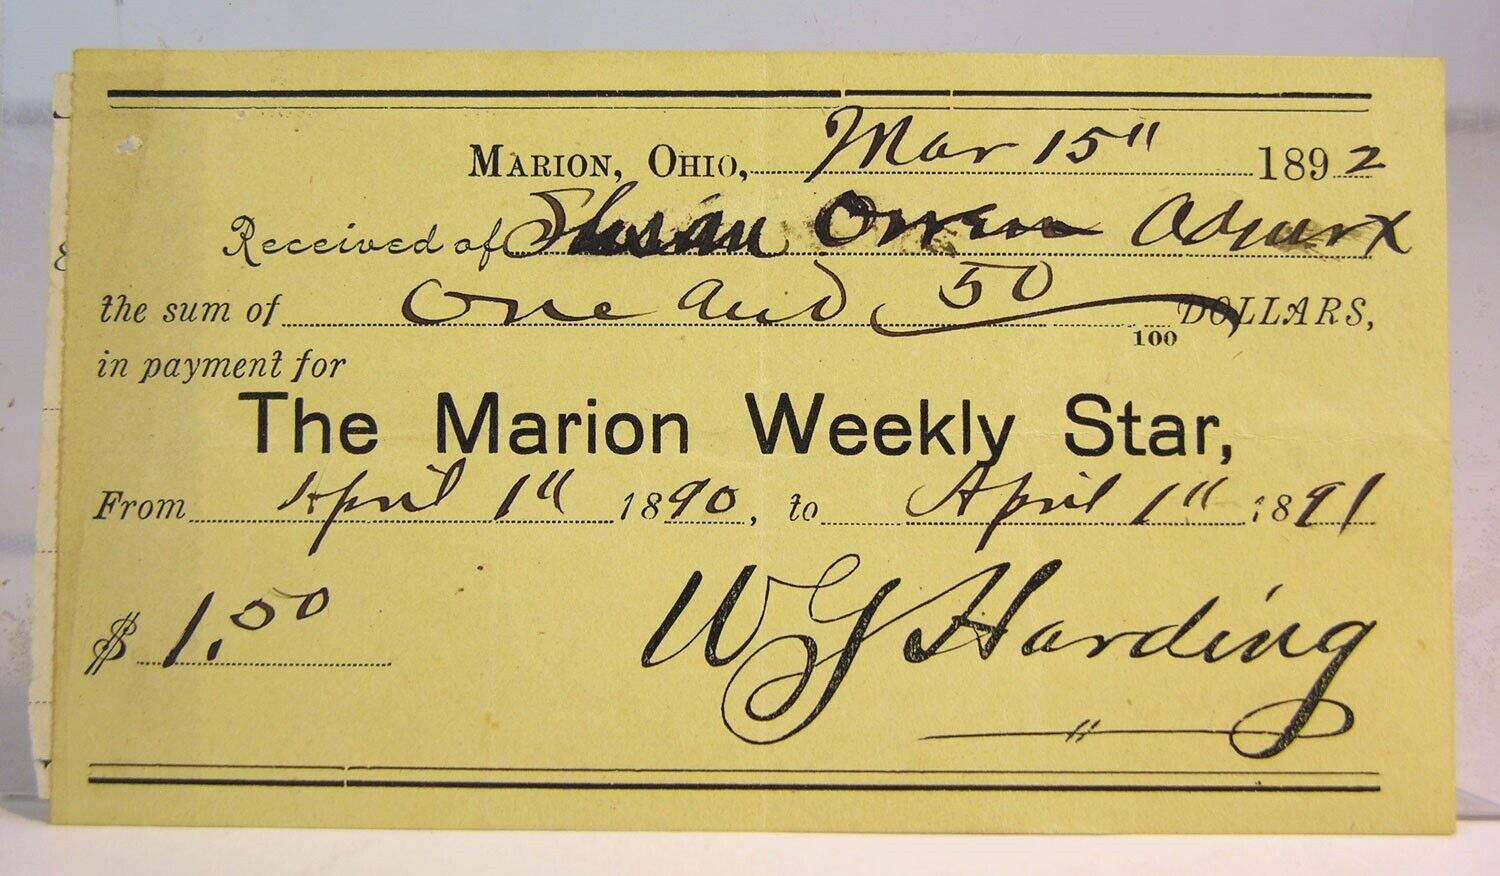 MARION, OHIO, Mar 15" 1892
Received of Susan Owen
the sum of One and 50 100 DOLLARS,
in payment for
The Marion Weekly Star,
From April 1" 1890, to April 1" 1891
$ 1.50 WG Harding